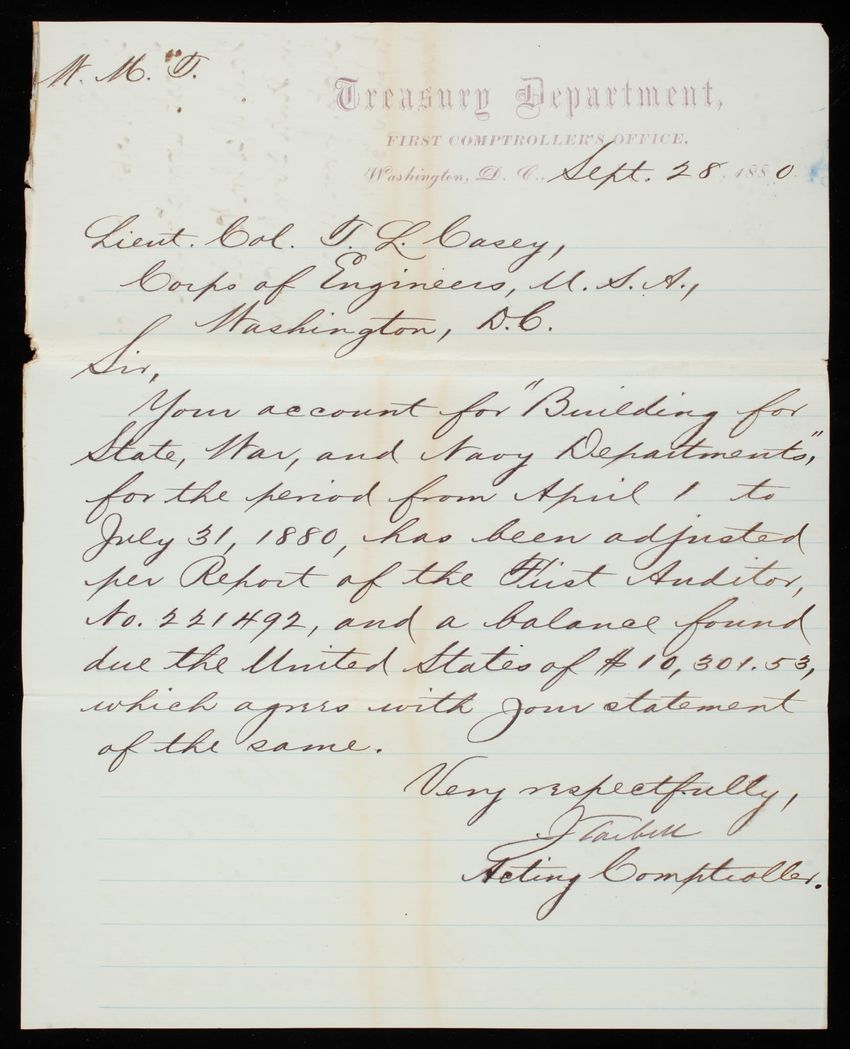 W. M. T.
Treasury Department,
FIRST COMPTROLLER'S OFFICE,
Washington, D. C., Sept. 28, 1880.
Lieut. Col. T. L. Casey,
Corps of Engineers, U. S. A.,
Washington, D.C.
Sir,
Your account for "Building for
State, War, and Navy Departments,"
for the period from April 1 to
July 31, 1880, has been adjusted
per Report of the First Auditor,
No. 221492, and a balance found
due the United States of $10,301.53,
which agrees with your statement
of the same.
Very respectfully,
J Tarbell
Acting Comptroller.